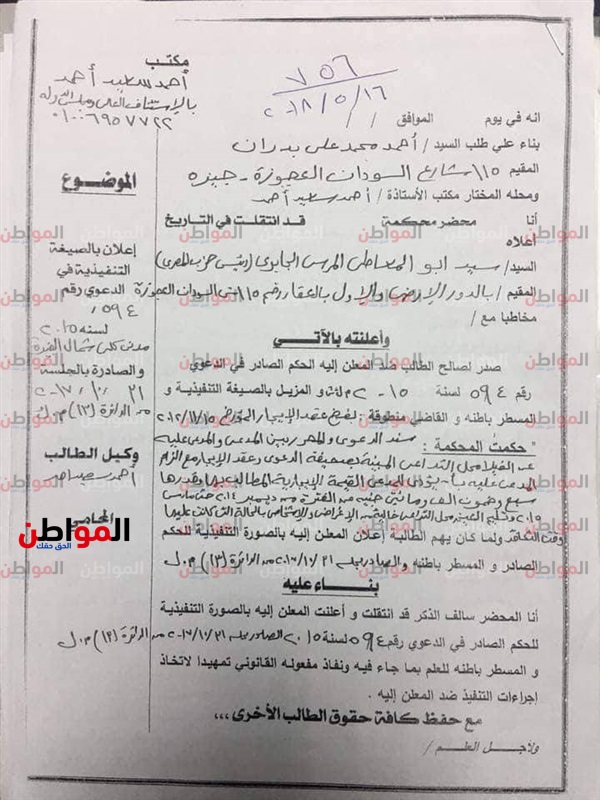 مكتب
أحمد سعيد أحمد
بالاستئناف العالى ومجلس الدولة
٧٥٦
٢٠١٨/٥/١٦
انه في يوم الموافق / /
بناء علي طلب السيد / أحمد محمد على بدران
المقيم ١١٥ شارع السودان العجوزة - جيزه
ومحله المختار مكتب الأستاذة / أحمد سعيد أحمد
أنا محضر محكمة قد انتقلت في التاريخ
أعلاه
السيد / سيد ابو المعاطى المرسى الجابرى (رئيس حزب مصرى)
المقيم / بالدور الارضى والاول بالعقار رقم ١١٥ السودان العجوزة
مخاطبا مع /
الموضوع
إعلان بالصيغة
التنفيذية في
الدعوي رقم
٥٩٤
لسنه ٢٠١٥
مدنى كلى شمال الجيزة
والصادرة بالجلسة
٢٠١٧/١٠/٢١
من الدائرة (١٣) م.ل
وكيل الطالب
أحمد سعيد أحمد
المحامى
وأعلنته بالآتي
صدر لصالح الطالب ضد المعلن إليه الحكم الصادر في الدعوي
رقم ٥٩٤ لسنة ٢٠١٥ و المزيل بالصيغة التنفيذية و
المسطر باطنه و القاضي منطوقة : بفسخ عقد الايجار المؤرخ ٢٠١٢/١١/١٥
" حكمت المحكمة : سند الدعوى والمحرر بين المدعى والمدعى عليه
عن الفيلا محل التداعى المبينة بصحيفة الدعوى وعقد الايجار مع الزام
المدعى عليه بأن يؤدى للمدعى القيمة الايجارية المطالب بها وقدرها
سبع وخمسون الف ومائتى جنيه عن الفترة من ديسمبر ٢٠١٤ حتى مارس
٢٠١٥ وتسليم العين محل التداعى خالية من الاغراض والاشخاص بالحالة التى كانت عليها
وقت التعاقد ولما كان يهم الطالبة إعلان المعلن إليه بالصورة التنفيذية للحكم
الصادر و المسطر باطنه والصادر بجلسة ٢٠١٧/١٠/٢١ من الدائرة (١٣) م.ل
بناء عليه
أنا المحضر سالف الذكر قد انتقلت و أعلنت المعلن إليه بالصورة التنفيذية
للحكم الصادر في الدعوي رقم ٥٩٤ لسنة ٢٠١٥ الصادر بجلسة ٢٠١٧/١٠/٢١ من الدائرة (١٣) م.ل
و المسطر باطنه للعلم بما جاء فيه ونفاذ مفعوله القانوني تمهيدا لاتخاذ
إجراءات التنفيذ ضد المعلن إليه .
مع حفظ كافة حقوق الطالب الأخرى ،،،
ولأجل العلم /
المواطن
الحق حقك